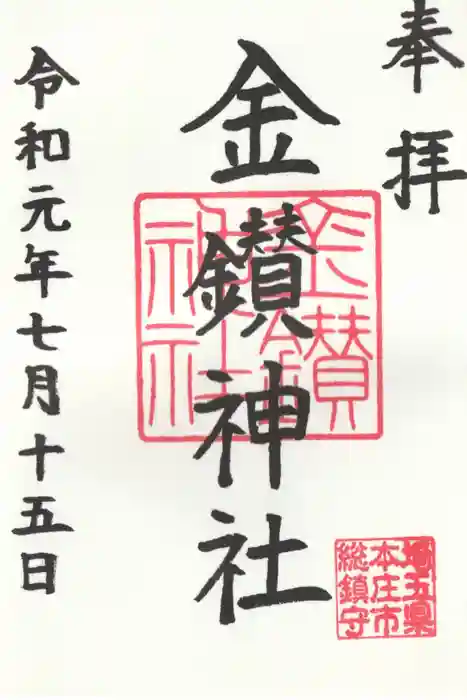 奉拝
金鑚神社
令和元年七月十五日
金鑚神社
埼玉県
本庄市
総鎮守